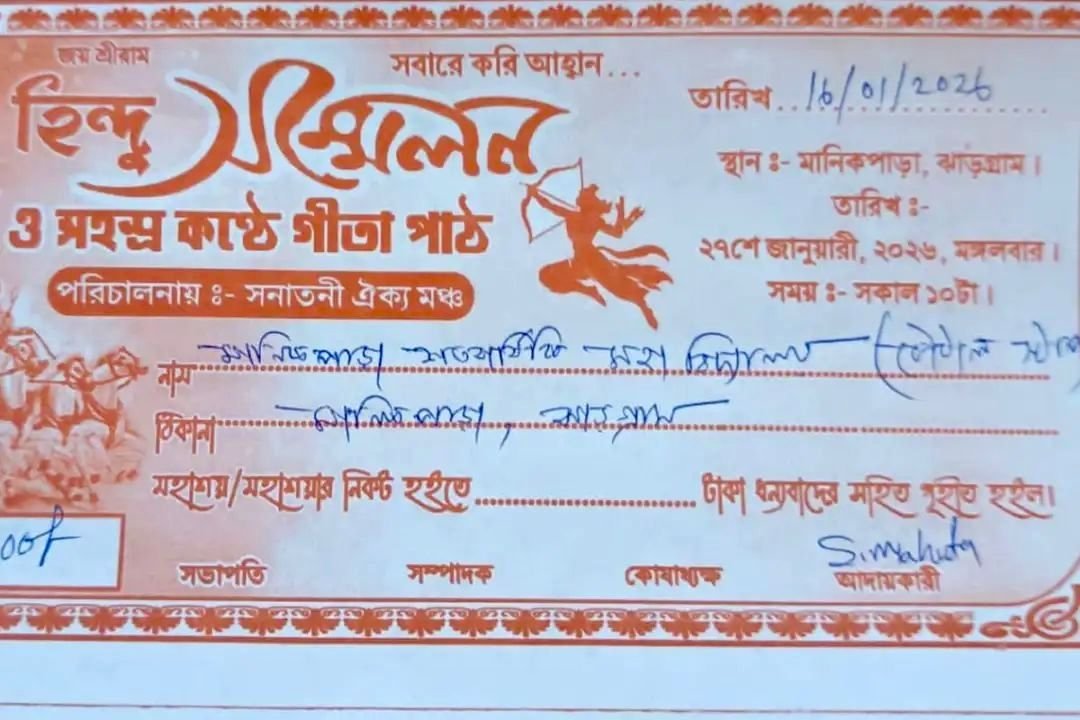 জয় শ্রীরাম
সবারে করি আহ্বান...
তারিখ..16/01/2026
হিন্দু সম্মেলন
ও সহস্র কণ্ঠে গীতা পাঠ
পরিচালনায় ঃ- সনাতনী ঐক্য মঞ্চ
স্থান ঃ- মানিকপাড়া, ঝাড়গ্রাম।
তারিখ ঃ-
২৭শে জানুয়ারী, ২০২৬, মঙ্গলবার।
সময় ঃ- সকাল ১০টা।
নাম মানিকপাড়া শতবার্ষিকী মহাবিদ্যালয়
ঠিকানা মানিকপাড়া, ঝাড়গ্রাম
মহাশয়/মহাশয়ার নিকট হইতে..............................টাকা ধন্যবাদের সহিত গৃহীত হইল।
00/-
S. Mahata
সভাপতি সম্পাদক কোষাধ্যক্ষ আদায়কারী